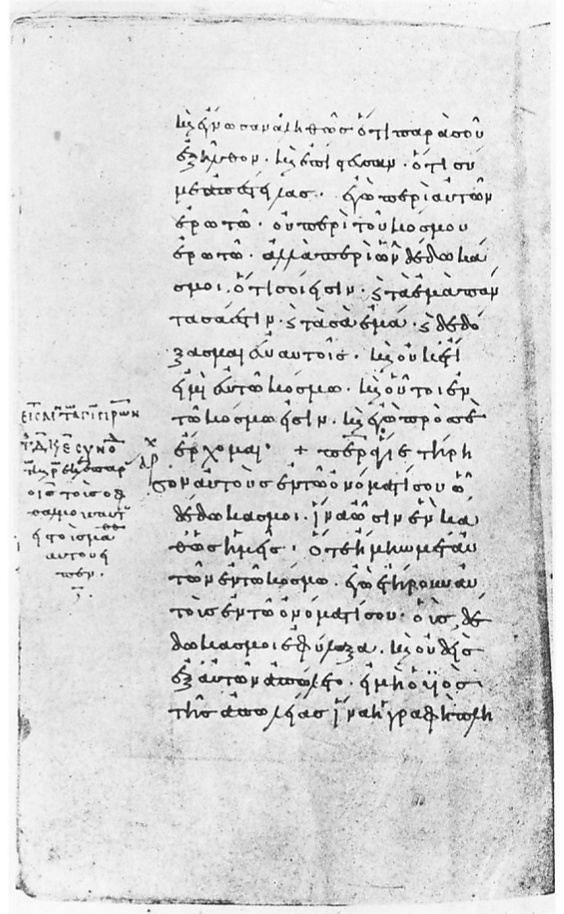 κ(αι) ἔγνωσαν ἀληθῶς ὅτι παρὰ σοῦ
ἐξῆλθον · κ(αι) ἐπίστευσαν · ὅτι σύ
με ἀπέστειλας · ἐγὼ περὶ αὐτῶν
ἐρωτῶ · οὐ περὶ τοῦ κοσμου
ἐρωτῶ · ἀλλὰ περὶ ὧν δέδωκα
σμοι · ὅτι σοί εἰσιν · κ(αι) τὰ ἐμὰ παν
τα σά ἐστιν · κ(αι) τὰ σὰ ἐμά · κ(αι) δεδό
ξασμαι ἐν αὐτοῖς · κ(αι) οὐκέτι
εἰμὶ ἐν τῶ κοσμω · κ(αι) οὗτοι ἐν
τῶ κοσμω εἰσίν · κ(αι) ἐγὼ πρὸς σὲ
ἔρχομαι · + περ ἅγιε τήρη
σον αὐτοὺς ἐν τῶ ὀνόματί σου ὧ
δέδωκας μοι · ἵνα ὦσιν ἓν κα
θὼς ἡμεῖς · ὅτε ἤμην μετ αὐ
τῶν ἐν τῶ κοσμω · ἐγὼ ἐτήρουν αυ
τοὺς ἐν τῶ ὀνόματί σου · οὓς δέ
δωκας μοι ἐφύλαξα · κ(αι) οὐδεὶς
ἐξ αὐτῶν ἀπώλετο · εἰ μὴ ὁ ϋἱὸς
τῆς ἀπωλείας ἵνα ἡ γραφὴ πλη
οις τους οφ
θαλμους αυτ
αυτου εἶ
πεν ·